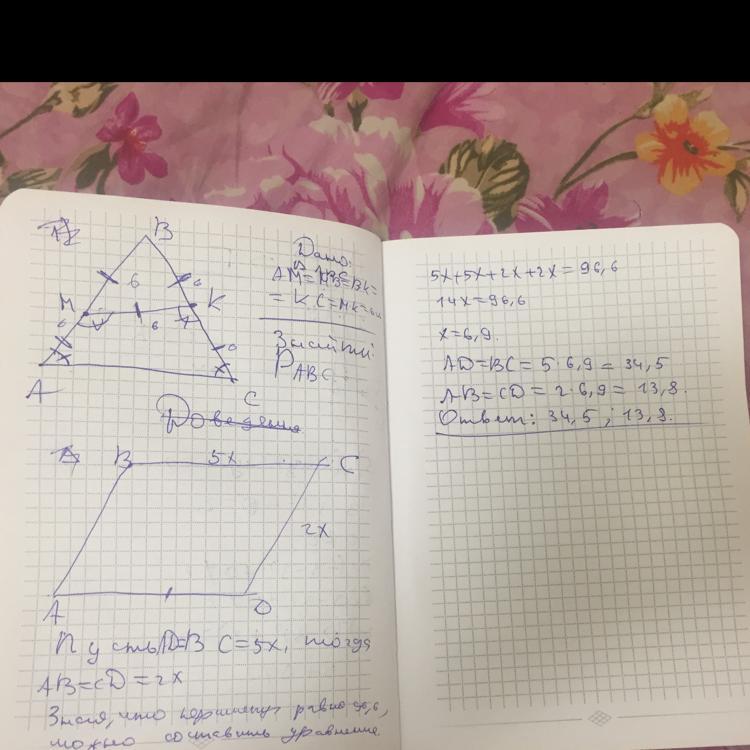 B
6
6
M
K
6
6
6
A
C
Дано:
AM=MB=BK=
= KC=MK=6см
Знайти:
P ABC.
B
5x
C
2x
A
D
Пусть AD=BC=5x, тогда
AB=CD=2x
Зная, что периметр равно 96,6,
можно составить уравнение
5x+5x+2x+2x=96,6
14x=96,6
x=6,9.
AD=BC=5·6,9=34,5
AB=CD=2·6,9=13,8.
Ответ: 34,5; 13,8.